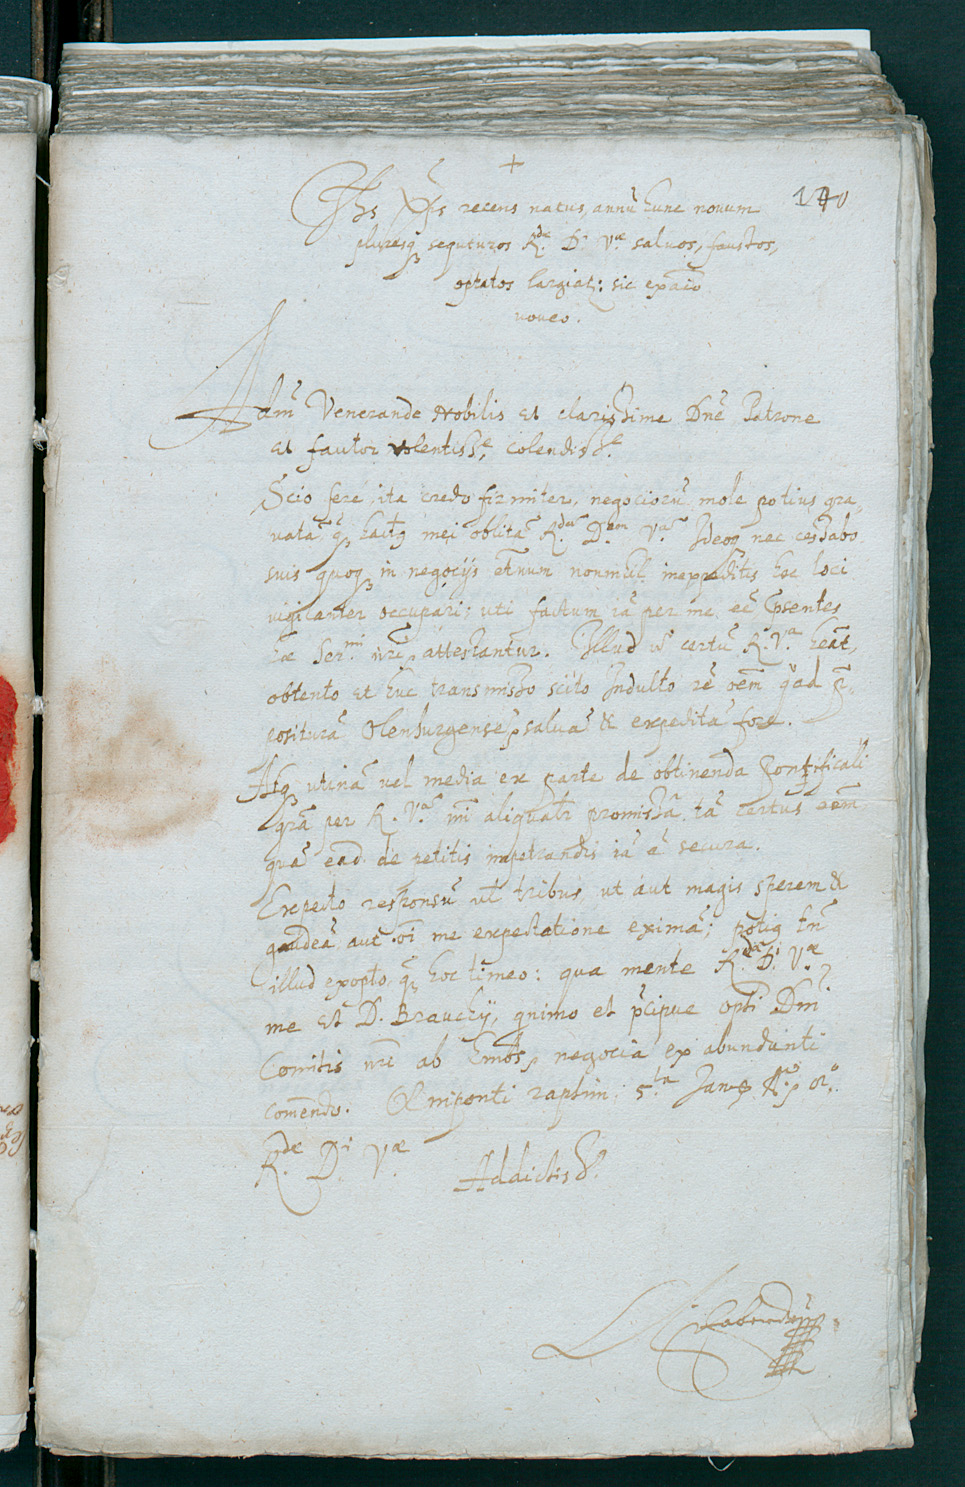 +
140
Jhs Xps recens natus, annũ hunc novum
pluresq₃ sequturos R.dae D.i V.ae salvos, faustos,
optatos largiat: sic ex aĩo
voveo.
Adm̃ Venerande Nobilis et clarissime Dñe Patrone
et fautor volentiss.e colendiss.e
Scio fere, ita credo firmiter, negociorũ mole potius gra-
vatã q̃ hacteg mei oblitã R.dam D.nem V.am Ideoq₃ nec cessabo
suis quoq₃ in negocijs etnum nonnihil inexpeditis hoc loci
vigilanter occupari; uti factum iã per me, eẽ p̃sentes
hae Ser.mi nrĩ attestantur. Illud v̊ certũ R. V.a heat,
obtento et huc transmisso scito Indulto rẽ oẽm q̊ad P̃-
positurã Olensurgensẽ, salvã & expeditã fore.
Atq₃ utinã vel media ex parte de obtinenda Pontificali
grã per R. V.am mĩ aliqualr promissa, tã certus eẽm
quã ead de petitis impetrandis iã ẽ secura.
Expecto responsũ vel tribus, ut aut magis sperem &
gaudeã aut oĩ me expectatione eximã; potiq tñ
illud exopto, q̃ hoc timeo: qua mente R.dae D.i V.ae
me et D. Brauchij, quinimo et p̃cipue opti Dñi
Comitis nrĩ ab negocia ex abundanti
comendo. Olniponti raptim: 5.ta Jan.
R.dae D.i V.ae
Addictiss.